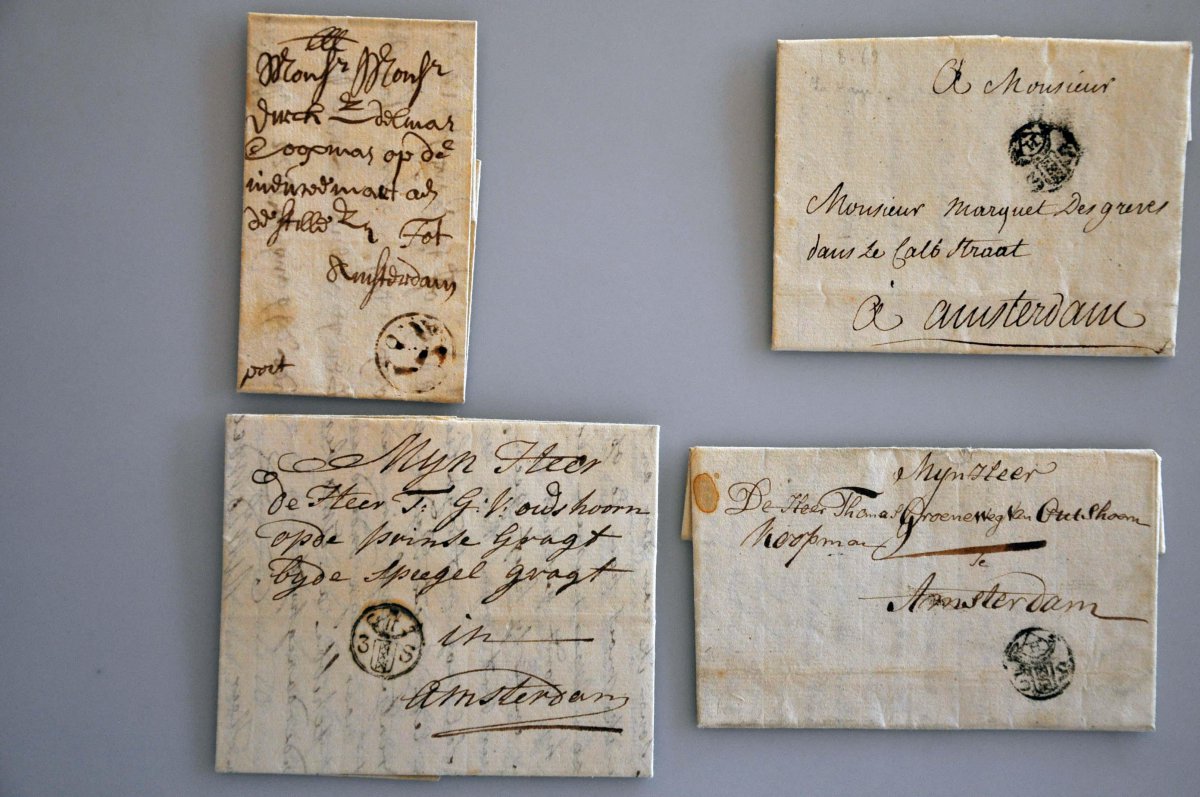 Monsr Monsr
Dirck Edelmar
Coopmar op de
nieuwe mart
de stille Tot
Amsterdam
port
A Monsieur
Monsieur Marquet Des greves
dans Le Calb Straat
A amsterdam
Myn Heer
de Heer T: G: V: oudshoorn
opde prinse Gragt
byde spiegel gragt
in
Amsterdam
3 S
Myn Heer
De Heer Thomas Groeneweg Van Outshoorn
Koopman
te
Amsterdam